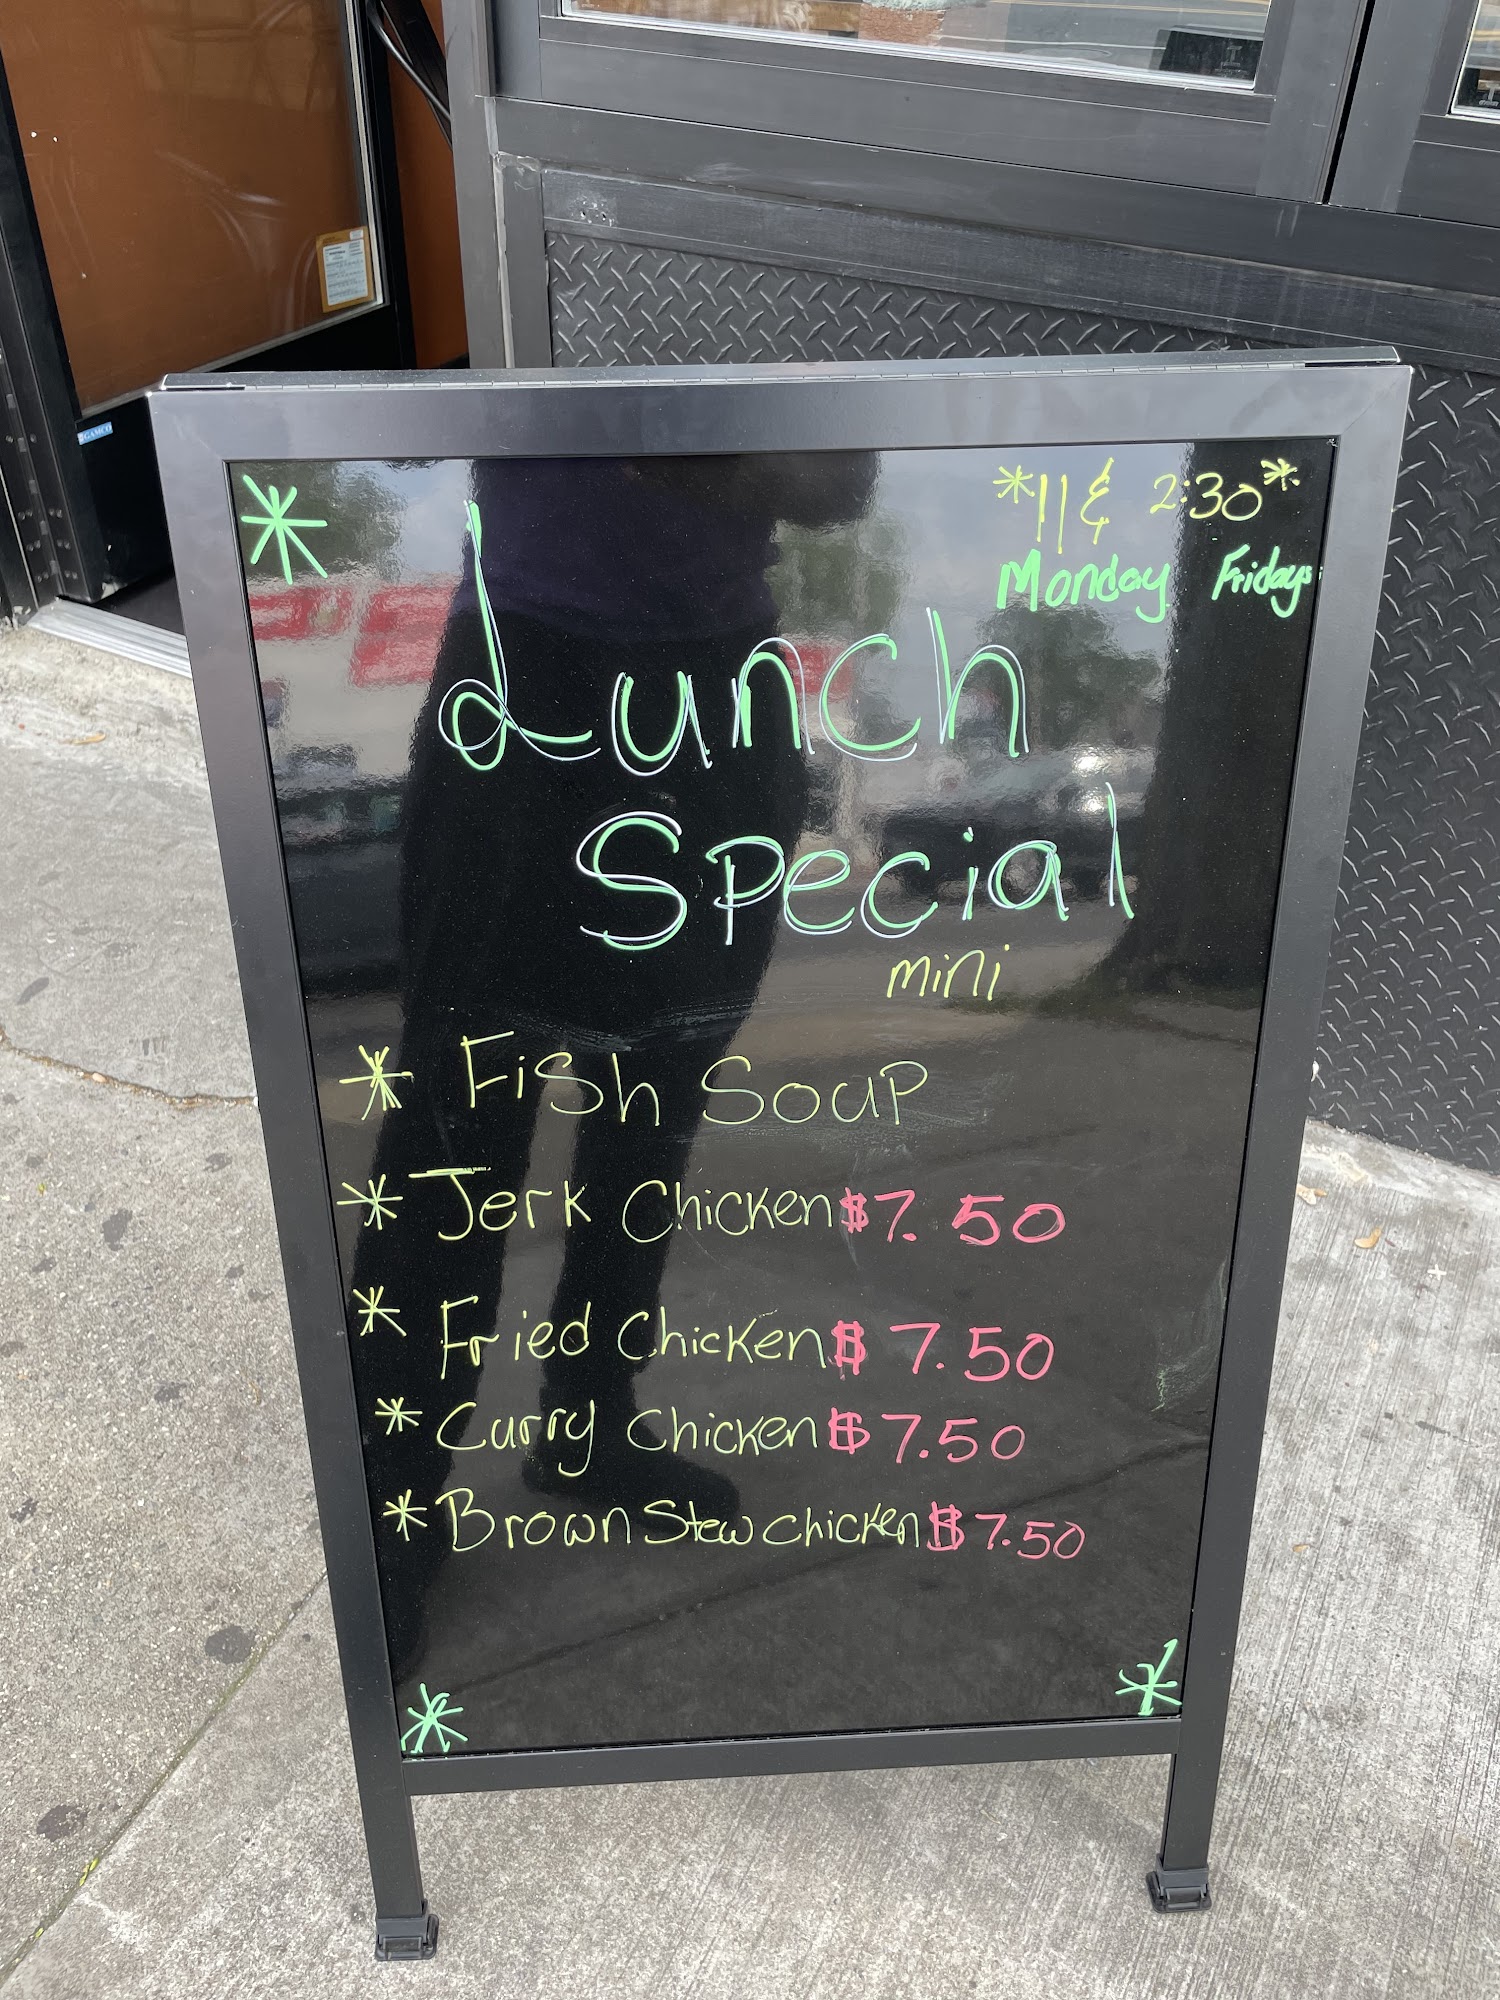 *11 & 2:30*
Monday Fridays
Lunch
Special
mini
* Fish Soup
* Jerk Chicken $7.50
* Fried Chicken $7.50
* Curry Chicken $7.50
* Brown Stew Chicken $7.50
GAMCO